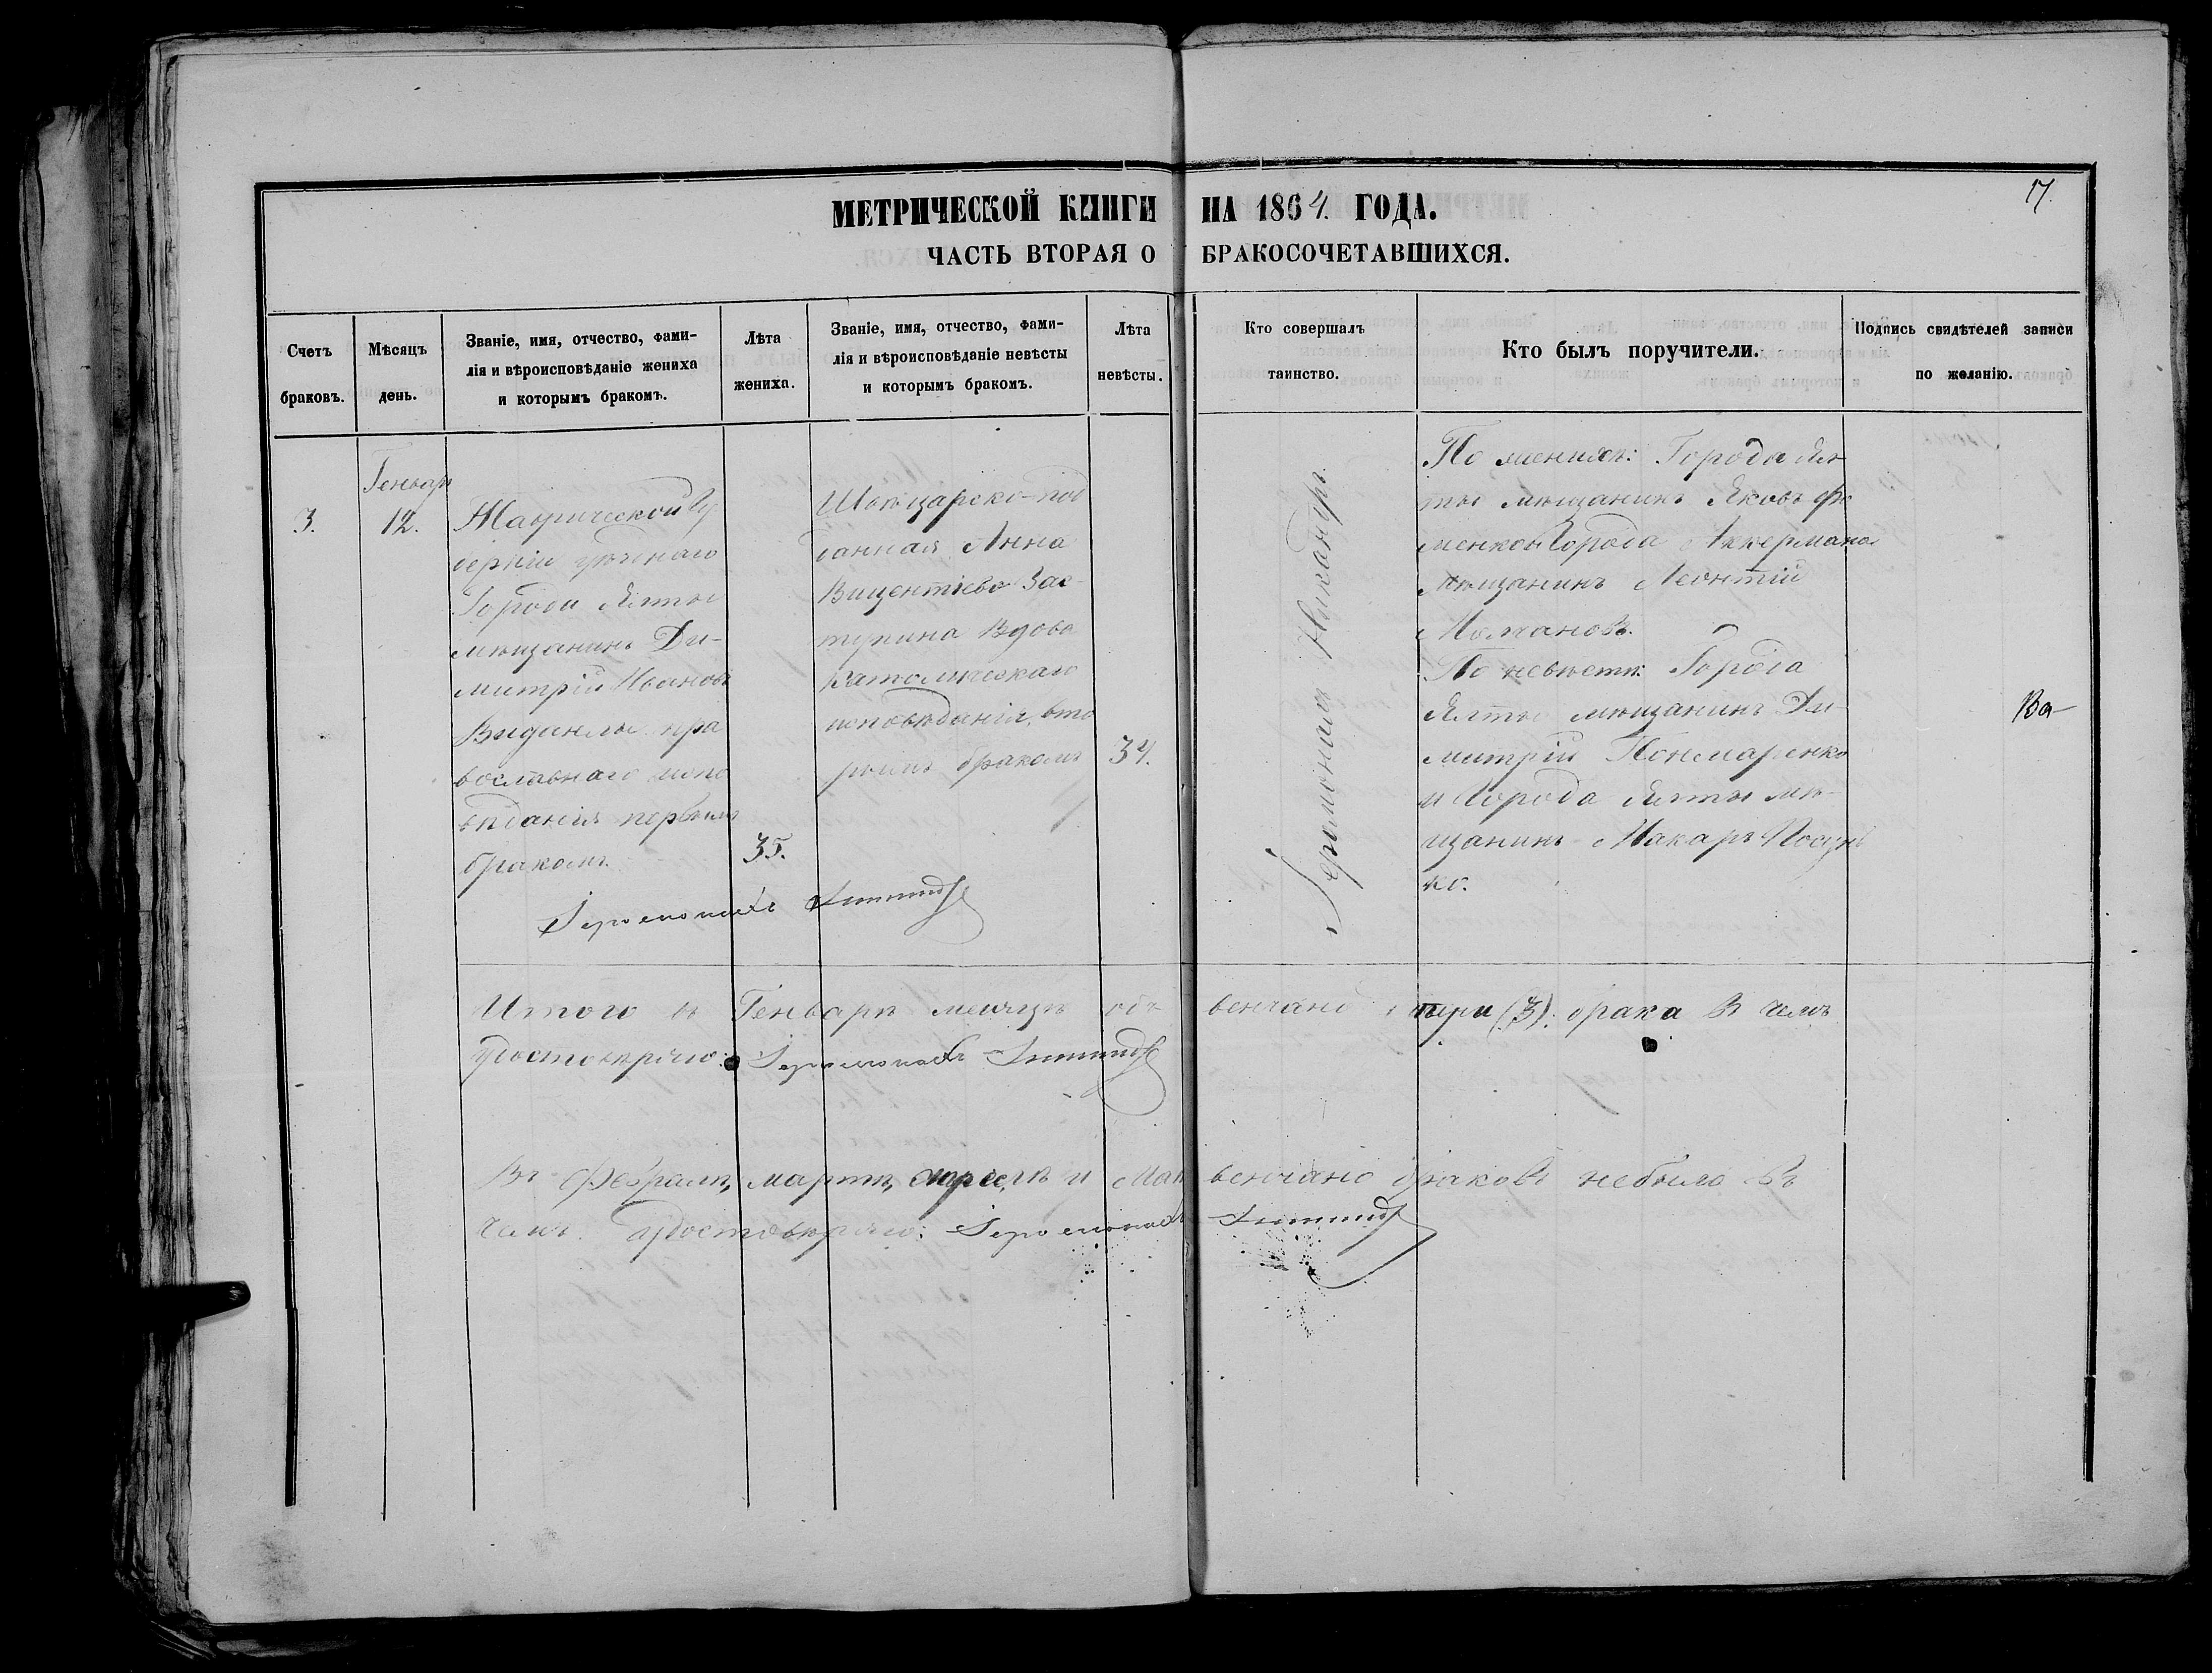 17.
МЕТРИЧЕСКОЙ КНИГИ НА 1864. ГОДА.
ЧАСТЬ ВТОРАЯ О БРАКОСОЧЕТАВШИХСЯ.
Счетъ
браковъ.
Мѣсяцъ
день.
Званіе, имя, отчество, фами-
лія и вѣроисповѣданіе жениха
и которымъ бракомъ.
Лѣта
жениха.
Званіе, имя, отчество, фами-
лія и вѣроисповѣданіе невѣсты
и которымъ бракомъ.
Лѣта
невѣсты.
Кто совершалъ
таинство.
Кто былъ поручители.
Подпись свидѣтелей записи
по желанію.
3.
Генвар
12.
Таврической Гу
берніи уѣзнаго
Города Ялты
мѣщанинъ Ди-
митрій Ивановъ
пра
вославнаго испо
вѣданія первымъ
бракомъ.
35.
Швѣцарско-под
данная Анна
Вицентіева Зас-
Вдова
Католическаго
исповѣданія, вто
рымъ бракомъ
34.
Іеромонахъ Никандръ.
По женихѣ: Города Ял
ты мѣщанинъ Яковъ Фо
менко Города Аккермана
мѣщанинъ Леонтій
Молчановъ.
По невѣстѣ: Города
Ялты мѣщанинъ Ди-
митрій Пономаренко
и Города Ялты мѣ-
щанинъ Макаръ
ко.
Ва-
Іеромонахъ
Итого въ Генварѣ месяцѣ об венчано три (3). брака В чемъ
удостовѣряю: Іеромонахъ
Въ Февралѣ, мартѣ, апрелѣ и Маѣ венчано браковъ небыло Въ
чемъ удостовѣряю: Іеромонахъ